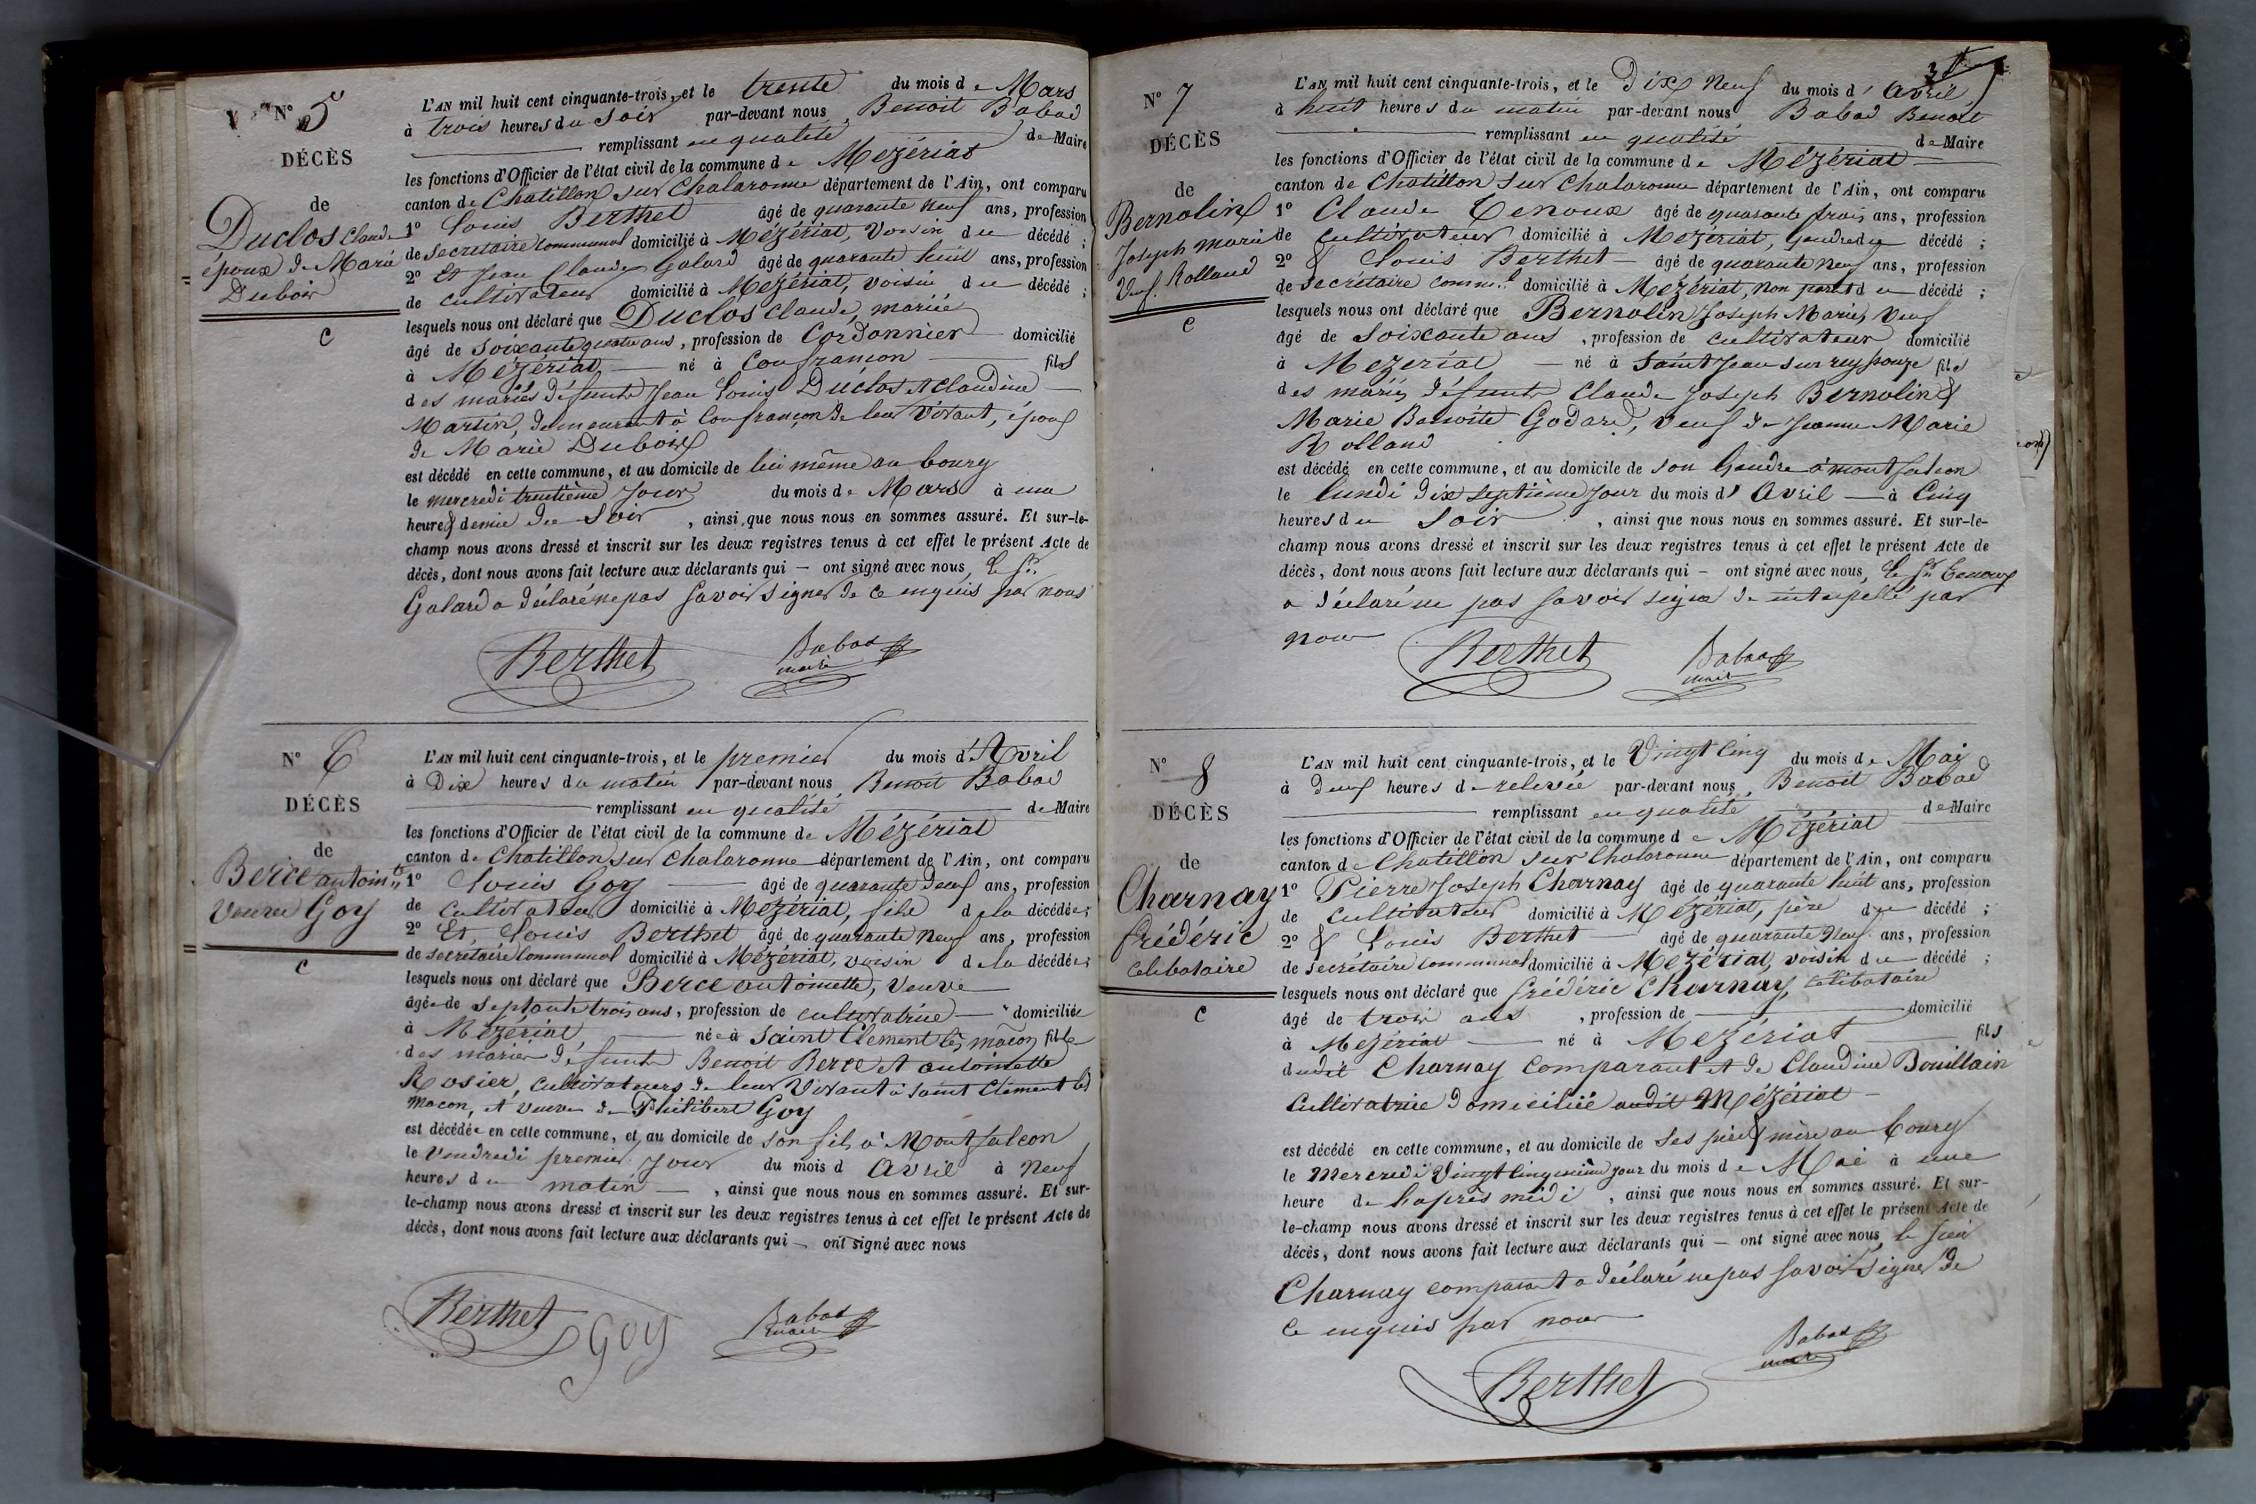 N° 5
DÉCÈS
de
Duclos Claude
époux de Marie
Dubois
C
L'AN mil huit cent cinquante-trois, et le trente du mois de Mars
à trois heures du soir par-devant nous, Benoit Babad
remplissant en qualité de Maire
les fonctions d'Officier de l'état civil de la commune de Mézériat
canton de Chatillon sur Chalaronne département de l'Ain, ont comparu
1° Louis Berthet âgé de quarante neuf ans, profession
de secretaire communal domicilié à Mézériat, voisin du décédé ;
2° Et Jean Claude Galard âgé de quarante huit ans, profession
de cultivateur domicilié à Mézériat, voisin du décédé ;
lesquels nous ont déclaré que Duclos Claude, marié
âgé de soixante quatre ans, profession de Cordonnier domicilié
à Mézériat, né à Confrançon fils
des mariés défunts Jean Louis Duclos et Claudine
Martin, demeurant à Confrançon de leur vivant, époux
de Marie Dubois
est décédé en cette commune, et au domicile de lui même au bourg
le mercredi trentième jour du mois de Mars à une
heure & demie du soir, ainsi que nous nous en sommes assuré. Et sur-le-
champ nous avons dressé et inscrit sur les deux registres tenus à cet effet le présent Acte de
décès, dont nous avons fait lecture aux déclarants qui — ont signé avec nous, le Sr.
Galard a déclaré ne pas savoir signer de ce enquis par nous
Berthet Babad
maire
N° 6
DÉCÈS
de
Berce antointte
veuve Goy
C
L'AN mil huit cent cinquante-trois, et le premier du mois d'Avril
à Dix heures du matin par-devant nous, Benoit Babad
remplissant en qualité de Maire
les fonctions d'Officier de l'état civil de la commune de Mézériat
canton de Chatillon sur Chalaronne département de l'Ain, ont comparu
1° Louis Goy âgé de quarante deux ans, profession
de cultivateur domicilié à Mézériat, fils de la décédée ;
2° Et Louis Berthet âgé de quarante neuf ans, profession
de secrétaire communal domicilié à Mézériat, voisin de la décédée ;
lesquels nous ont déclaré que Berce antoinette, veuve
âgée de septante trois ans, profession de cultivatrice domiciliée
à Mézériat née à Saint Clement lès macon fille
des mariés défunts Benoit Berce et antoinette
Rosier, cultivateurs de leur vivant à Saint Clement lès
Macon, et veuve de Philibert Goy
est décédée en cette commune, et au domicile de son fils à Montfalcon
le vendredi premier jour du mois d Avril à neuf
heures du matin, ainsi que nous nous en sommes assuré. Et sur-
le-champ nous avons dressé et inscrit sur les deux registres tenus à cet effet le présent Acte de
décès, dont nous avons fait lecture aux déclarants qui — ont signé avec nous
Berthet Goy Babad
maire
N° 7
DÉCÈS
de
Bernolin
Joseph Marie
veuf Rolland
C
L'AN mil huit cent cinquante-trois, et le Dix Neuf du mois d'Avril
à huit heures du matin par-devant nous Babad Benoit
remplissant en qualité de Maire
les fonctions d'Officier de l'état civil de la commune de Mézériat
canton de Chatillon sur Chalaronne département de l'Ain, ont comparu
1° Claude Tenoux âgé de quarante trois ans, profession
de cultivateur domicilié à Mézériat, gendre du décédé ;
2° & Louis Berthet âgé de quarante neuf ans, profession
de secrétaire comm.l domicilié à Mézériat, non parent du décédé ;
lesquels nous ont déclaré que Bernolin Joseph Marie, veuf
âgé de soixante ans, profession de cultivateur domicilié
à Mezeriat né à Saint Jean sur reyssouze fils
des mariés défunts Claude Joseph Bernolin &
Marie Benoite Godard, veuf de Jeanne Marie
Rolland
est décédé en cette commune, et au domicile de son Gendre à montfalcon
le lundi dix septième jour du mois d'Avril à Cinq
heures du soir, ainsi que nous nous en sommes assuré. Et sur-le-
champ nous avons dressé et inscrit sur les deux registres tenus à cet effet le présent Acte de
décès, dont nous avons fait lecture aux déclarants qui — ont signé avec nous, le Sr Tenoux
a déclaré ne pas savoir signer de interpellé par
nous
Berthet Babad
maire
N° 8
DÉCÈS
de
Charnay
frédéric
celibataire
C
L'AN mil huit cent cinquante-trois, et le Vingt Cinq du mois de Mai
à Deux heures de relevée par-devant nous, Benoit Babad
remplissant en qualité de Maire
les fonctions d'Officier de l'état civil de la commune de Mézériat
canton de Chatillon sur Chalaronne département de l'Ain, ont comparu
1° Pierre Joseph Charnay âgé de quarante huit ans, profession
de cultivateur domicilié à Mézériat, père du décédé ;
2° & Louis Berthet âgé de quarante neuf ans, profession
de secrétaire communal domicilié à Mézériat, voisin du décédé ;
lesquels nous ont déclaré que frédéric Charnay, célibataire
âgé de trois ans, profession de domicilié
à Mezériat né à Mézériat fils
dudit Charnay comparant et de Claudine Bouillain
cultivatrice domiciliée audit Mézériat
est décédé en cette commune, et au domicile de ses père & mère au bourg
le Mercredi vingt cinquième jour du mois de Mai à une
heure de haprès midi, ainsi que nous nous en sommes assuré. Et sur-
le-champ nous avons dressé et inscrit sur les deux registres tenus à cet effet le présent Acte de
décès, dont nous avons fait lecture aux déclarants qui — ont signé avec nous, le sieur
Charnay comparant a déclaré ne pas savoir signer de
ce enquis par nous
Berthet Babad
maire